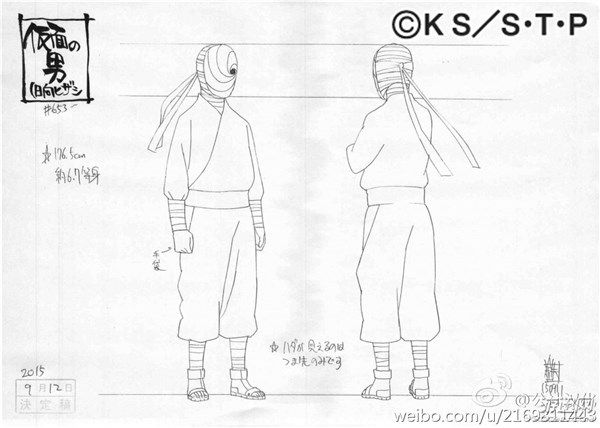 ©KS/S・T・P
仮面の
男
(日向ヒザシ
#653
☆176.5cm
約6.7等身
手袋
☆ハダが見えるのは
つま先のみです
2015
9月12日
決定稿
weibo.com/u/2169311443